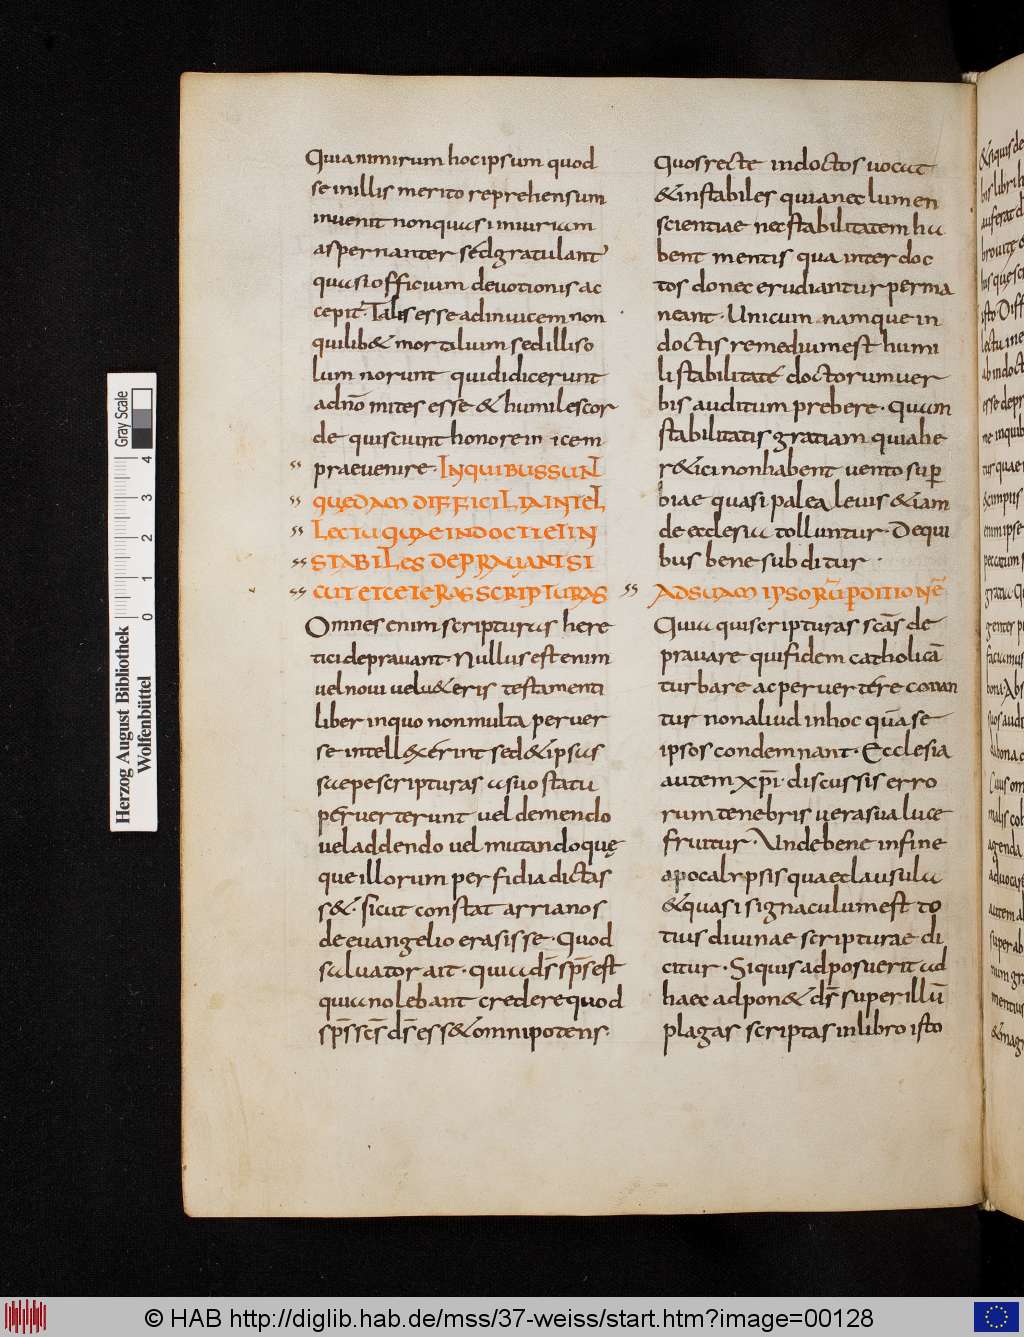 Quia nimirum hoc ipsum quod
se in illis merito reprehensum
invenit non quasi iniuriam
aspernanter sed gratulant
quasi officium devotionis ac
cepit· Talis esse ad invicem non
quilib& mortalium sed illi so
lum norunt qui didicerunt
ad nō mites esse & humiles cor
de qui sciunt honore in icem
praevenire· IN QUIBUS SUNT
QUĘDAM DIFFICILIA INTEL
LECTU QUAE INDOCTI ET IN
STABILES DEPRAUANT SI
CUT ET CETERAS SCRIPTURAS
Omnes enim scripturas here
tici depravant· Nullus est enim
uel noui uel u&eris testamenti
liber in quo non multa peruer
se intellexerint sed & ipsas
saepe scripturas a suo statu
peruerterunt uel demendo
uel addendo uel mutando quę
que illorum perfidia dictas
s&· sicut constat arrianos
de euangelio erasisse· Quod
saluator ait· quia ds̄ sps̄ est
quia nolebant credere quod
sps̄ scs̄ ds̄ ess& omnipotens·
Quos recte indoctos uocat
& instabiles quia nec lumen
scientiae nec stabilitatem ha
bent mentis qua inter doc
tos donec erudiantur perma
neant· Unicum namque in
doctis remedium est humi
li stabilitate doctorum uer
bis auditum prebere· Quam
stabilitatis gratiam quia he
r&ici non habent uento supꝑ
biae quasi palea leuis & iam
de ecclesia tolluntur· De qui
bus bene subditur·
AD SUAM IPSORŪ PDITIONĒ
Quia qui scripturas scās de
prauare qui fidem catholicā
turbare ac peruertere conan
tur non aliud in hoc quā se
ipsos condemnant· Ecclesia
autem xp̄i discussis erro
rum tenebris uera sua luce
fruitur· Unde bene in fine
apocalypsis quae clausula
& quasi signaculum est to
tius diuinae scripturae di
citur· Si quis adposuerit ad
haec adpon& ds̄ super illū
plagas scriptas in libro isto
Herzog August Bibliothek
Wolfenbüttel
Gray Scale
0 1 2 3 4
© HAB http://diglib.hab.de/mss/37-weiss/start.htm?image=00128